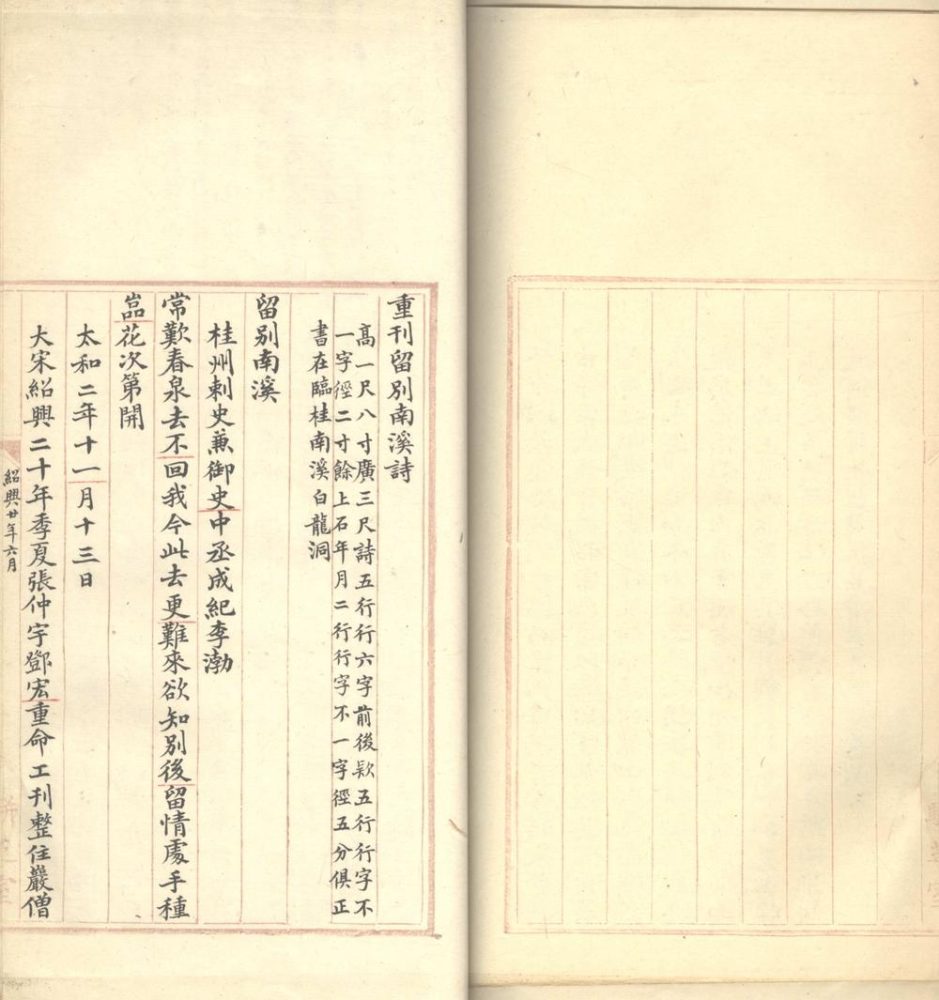 重刊留別南溪詩
高一尺八寸廣三尺詩五行行六字前後欵五行行字不
一字徑二寸餘上石年月二行行字不一字徑五分俱正
書在臨桂南溪白龍洞
留別南溪
桂州刺史兼御史中丞成紀李渤
常歎春泉去不回我今此去更難來欲知別後留情處手種
嵓花次第開
太和二年十一月十三日
大宋紹興二十年季夏張仲宇鄧宏重命工刊整住巖僧
紹興廿年六月